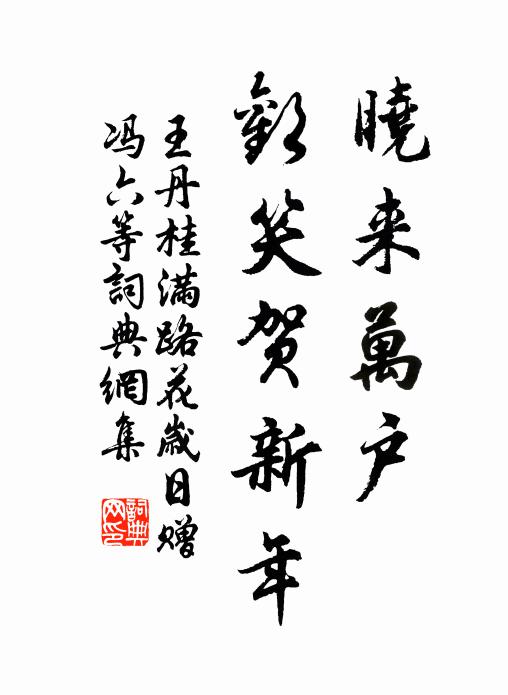 曉来萬戶
歡笑贺新年
王丹桂滿路花歲日贈
冯六等詞典網集
詞典
网印